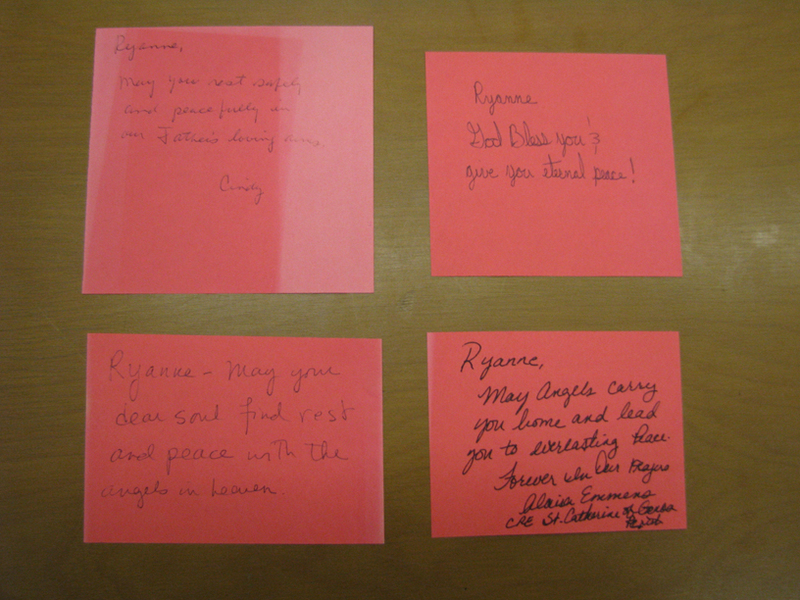 Ryanne,
May you rest safely
and peacefully in
our Father's loving arms.
Cindy
Ryanne
God Bless you &
give you eternal peace!
Ryanne - May your
dear soul find rest
and peace with the
angels in heaven.
Ryanne,
May Angels carry
you home and lead
you to everlasting Peace.
Forever in Our Prayers
Emmens
CRE St. Catherine of Genoa
Parish